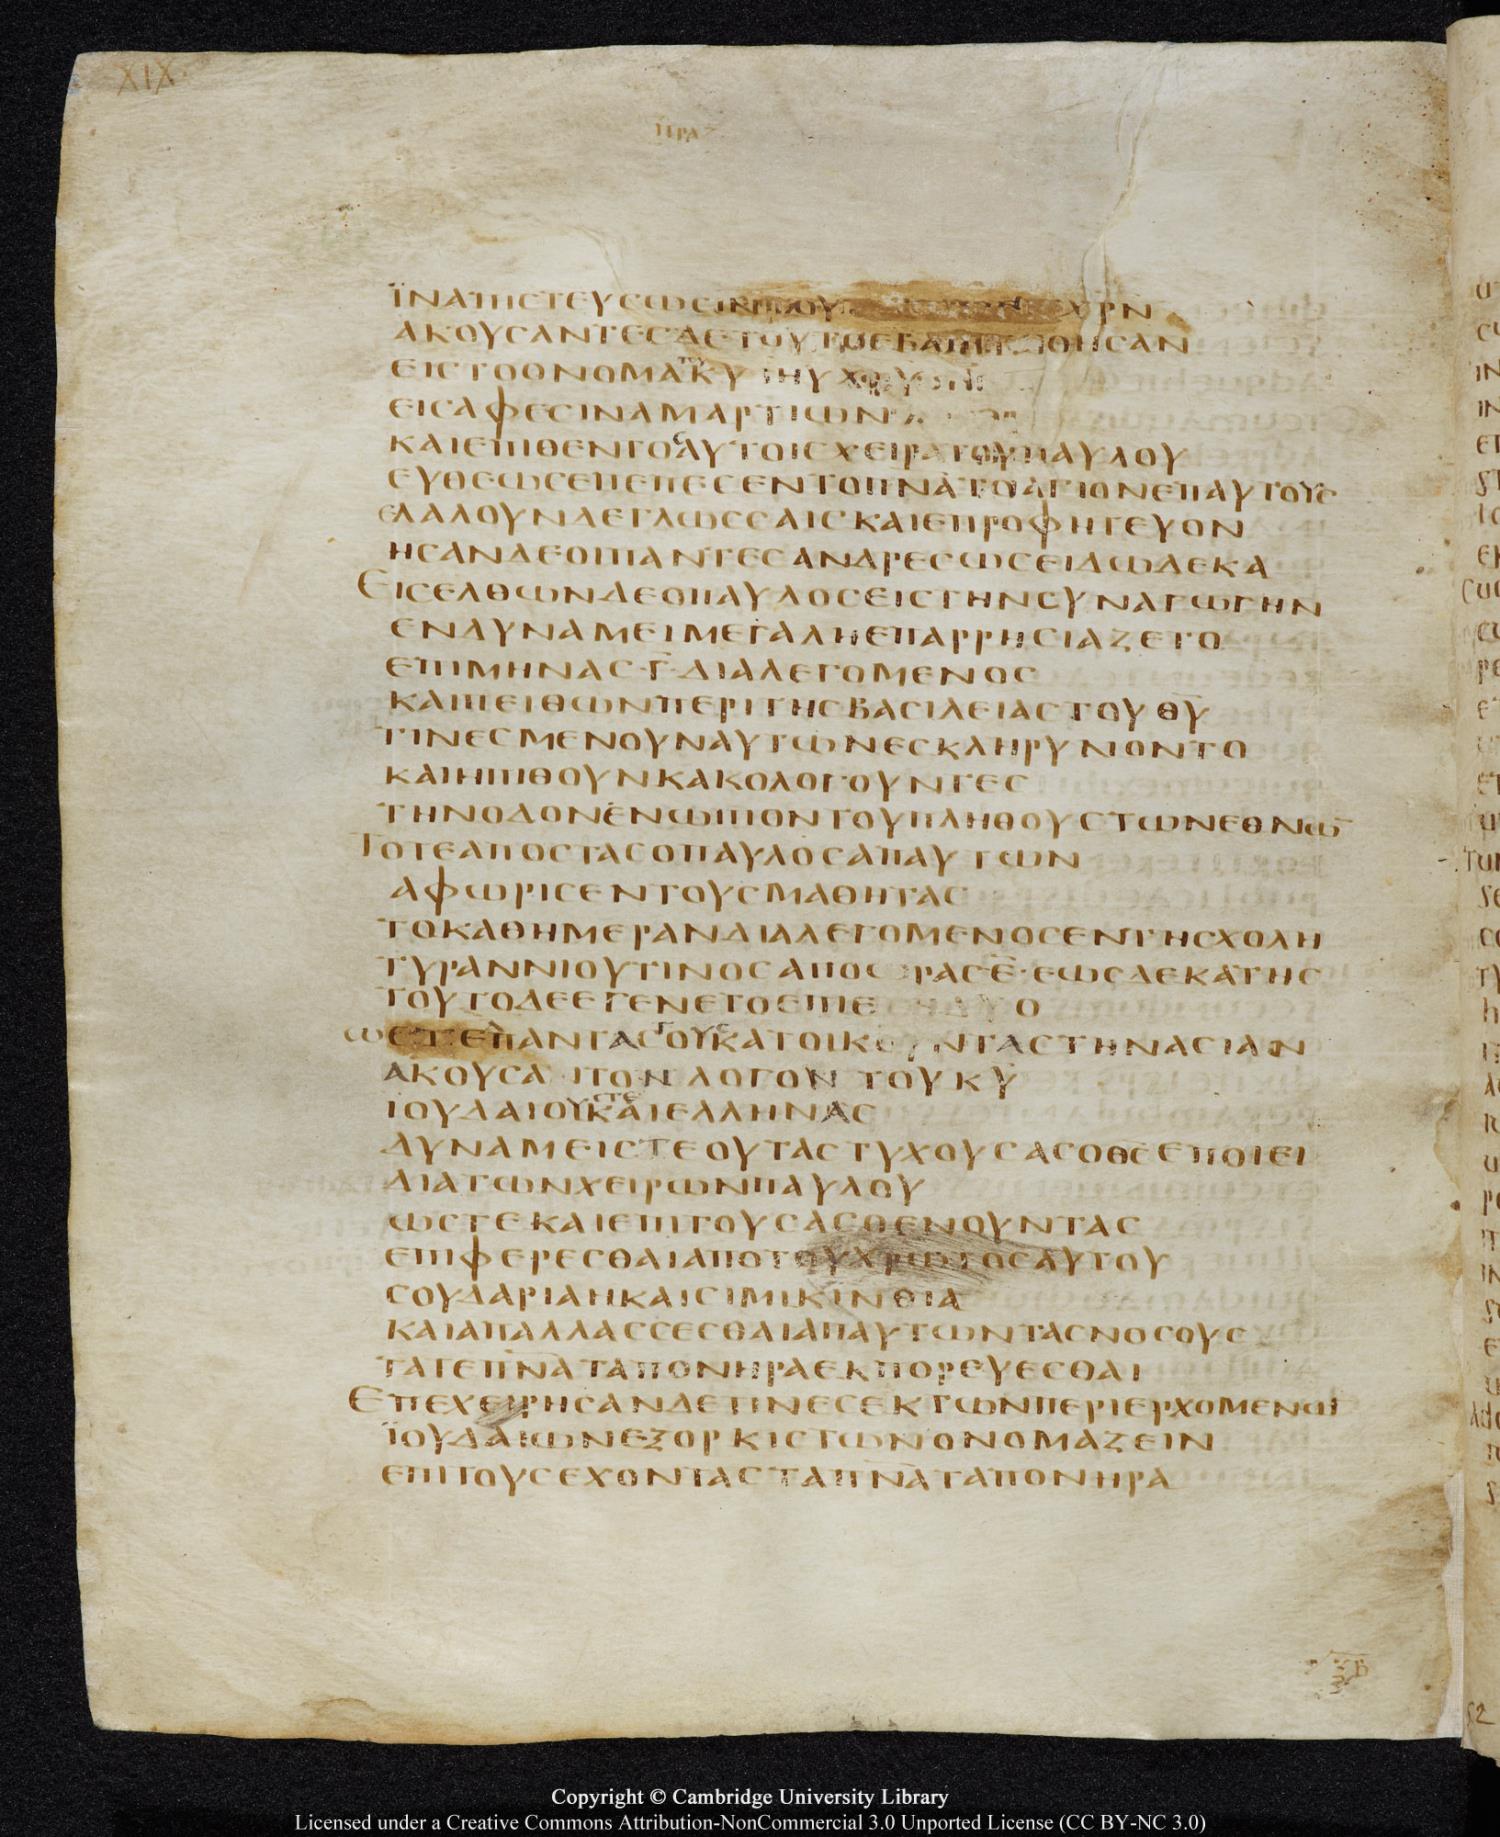 XIX
ΠΡΑΞ
ΪΝΑΠΙCΤΕΥCΩCΙΝ
ΑΚΟΥCΑΝΤΕCΔΕΤΟΥΤΟΕΒΑΠΤΙCΘΗCΑΝ
ΕΙCΤΟΟΝΟΜΑ ΤΟΥ ΚΥ ΙΗΥ ΧΡΥ
ΕΙCΑΦΕCΙΝΑΜΑΡΤΙΩΝ
ΚΑΙΕΠΙΘΕΝΤΟCΑΥΤΟΙCΧΕΙΡΑΤΟΥΠΑΥΛΟΥ
ΕΥΘΕΩCΕΠΕΠΕCΕΝΤΟΠΝΑΤΟΑΓΙΟΝΕΠΑΥΤΟΥC
ΕΛΑΛΟΥΝΔΕΓΛΩCCΑΙCΚΑΙΕΠΡΟΦΗΤΕΥΟΝ
ΗCΑΝΔΕΟΙΠΑΝΤΕCΑΝΔΡΕCΩCΕΙΔΩΔΕΚΑ
ΕΙCΕΛΘΩΝΔΕΟΠΑΥΛΟCΕΙCΤΗΝCΥΝΑΓΩΓΗΝ
ΕΝΔΥΝΑΜΕΙΜΕΓΑΛΗΕΠΑΡΡΗCΙΑΖΕΤΟ
ΕΠΙΜΗΝΑC·Γ̄·ΔΙΑΛΕΓΟΜΕΝΟC
ΚΑΙΠΕΙΘΩΝΠΕΡΙΤΗCΒΑCΙΛΕΙΑCΤΟΥΘΥ
ΤΙΝΕCΜΕΝΟΥΝΑΥΤΩΝΕCΚΛΗΡΥΝΟΝΤΟ
ΚΑΙΗΠΙΘΟΥΝΚΑΚΟΛΟΓΟΥΝΤΕC
ΤΗΝΟΔΟΝΕΝΩΠΙΟΝΤΟΥΠΛΗΘΟΥCΤΩΝΕΘΝΩ̄
ΤΟΤΕΑΠΟCΤΑCΟΠΑΥΛΟCΑΠΑΥΤΩΝ
ΑΦΩΡΙCΕΝΤΟΥCΜΑΘΗΤΑC
ΤΟΚΑΘΗΜΕΡΑΝΔΙΑΛΕΓΟΜΕΝΟCΕΝΤΗCΧΟΛΗ
ΤΥΡΑΝΝΙΟΥΤΙΝΟCΑΠΟΩΡΑCΕ̄·ΕΩCΔΕΚΑΤΗC
ΤΟΥΤΟΔΕΕΓΕΝΕΤΟΕΠΙΕΤΗΔΥΟ
ΩCΤΕΠΑΝΤΑCΤΟΥCΚΑΤΟΙΚΟΥΝΤΑCΤΗΝΑCΙΑΝ
ΑΚΟΥCΑΙΤΟΝΛΟΓΟΝΤΟΥΚΥ
ΙΟΥΔΑΙΟΥCΤΕΚΑΙΕΛΛΗΝΑC
ΔΥΝΑΜΕΙCΤΕΟΥΤΑCΤΥΧΟΥCΑCΟΘCΕΠΟΙΕΙ
ΔΙΑΤΩΝΧΕΙΡΩΝΠΑΥΛΟΥ
ΩCΤΕΚΑΙΕΠΙΤΟΥCΑCΘΕΝΟΥΝΤΑC
ΕΠΙΦΕΡΕCΘΑΙΑΠΟΤΟΥΧΡΩΤΟCΑΥΤΟΥ
CΟΥΔΑΡΙΑΗΚΑΙCΙΜΙΚΙΝΘΙΑ
ΚΑΙΑΠΑΛΛΑCCΕCΘΑΙΑΠΑΥΤΩΝΤΑCΝΟCΟΥC
ΤΑΤΕΠΝΑΤΑΠΟΝΗΡΑΕΚΠΟΡΕΥΕCΘΑΙ
ΕΠΕΧΕΙΡΗCΑΝΔΕΤΙΝΕCΕΚΤΩΝΠΕΡΙΕΡΧΟΜΕΝΩ̄
ΪΟΥΔΑΙΩΝΕΞΟΡΚΙCΤΩΝΟΝΟΜΑΖΕΙΝ
ΕΠΙΤΟΥCΕΧΟΝΤΑCΤΑΠΝΑΤΑΠΟΝΗΡΑ
Copyright © Cambridge University Library
Licensed under a Creative Commons Attribution-NonCommercial 3.0 Unported License (CC BY-NC 3.0)